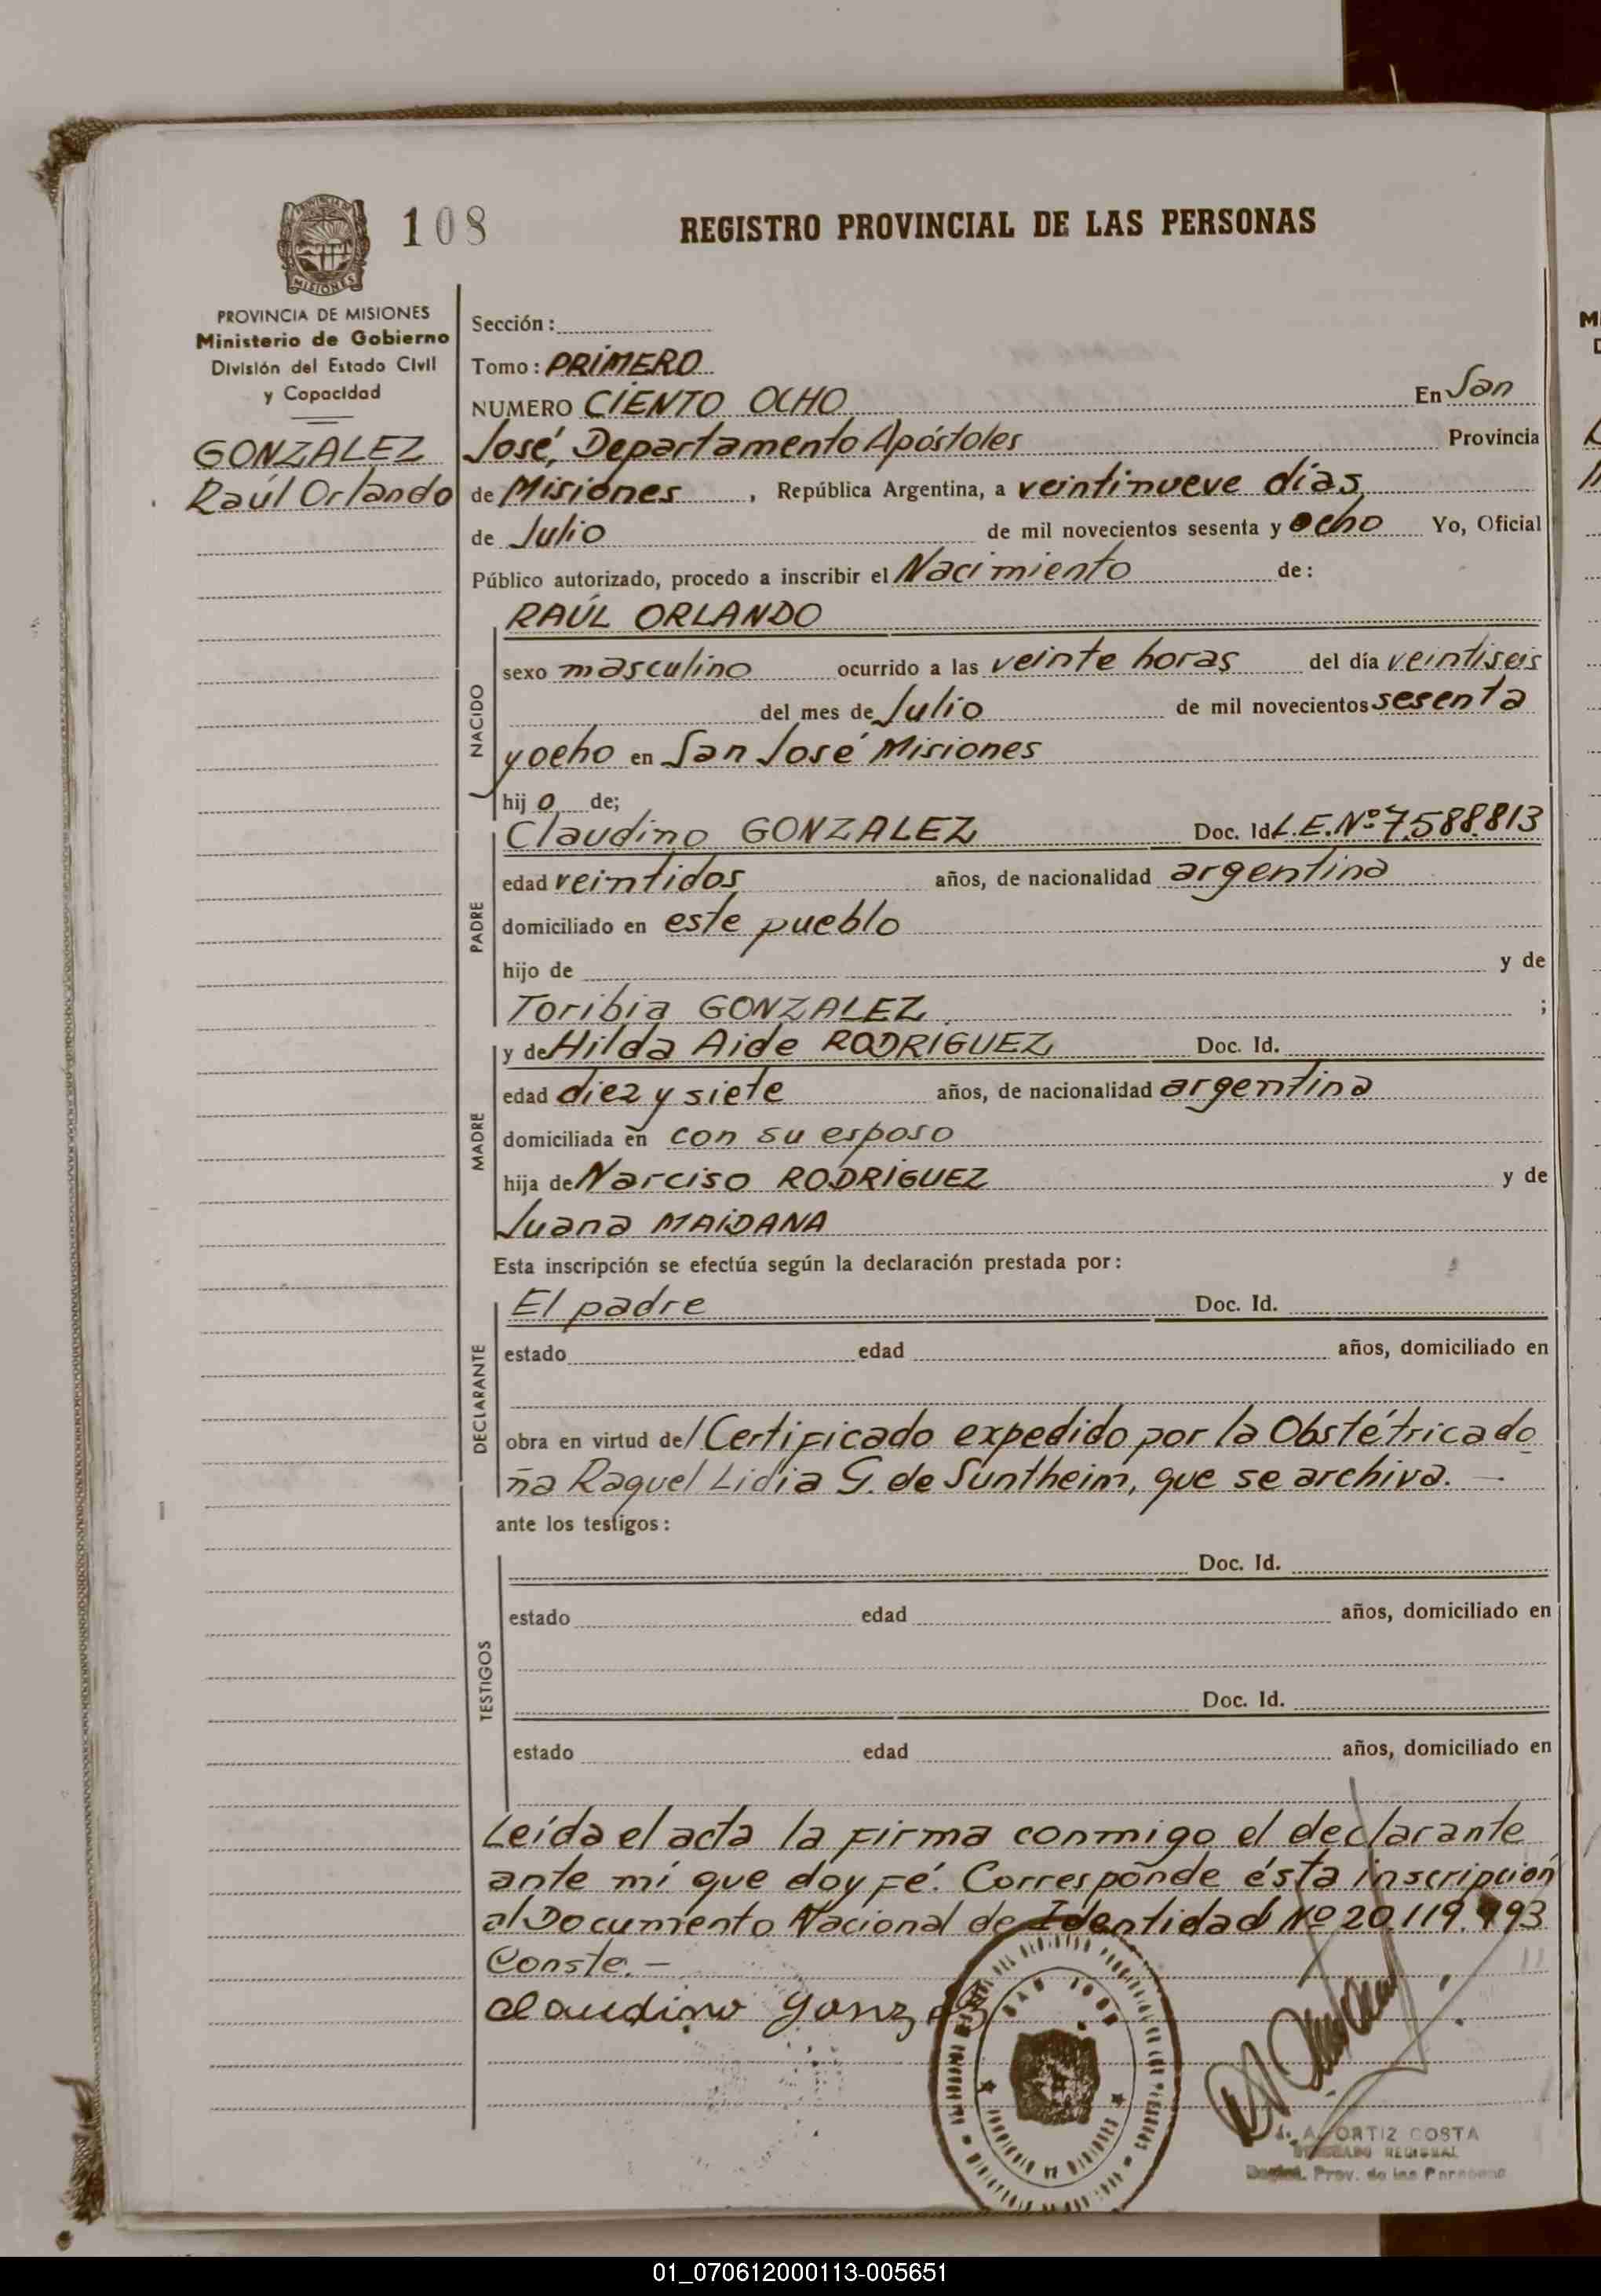 108
REGISTRO PROVINCIAL DE LAS PERSONAS
PROVINCIA DE MISIONES
Ministerio de Gobierno
División del Estado Civil
y Capacidad
GONZALEZ
Raúl Orlando
Sección:
Tomo: PRIMERO
NUMERO CIENTO OCHO En San
José, Departamento Apóstoles Provincia
de Misiones, República Argentina, a veintinueve días
de Julio de mil novecientos sesenta y ocho Yo, Oficial
Público autorizado, procedo a inscribir el Nacimiento de:
NACIDO
RAÚL ORLANDO
sexo masculino ocurrido a las veinte horas del día veintiseis
del mes de Julio de mil novecientos sesenta
y ocho en San José Misiones
hijo de;
PADRE
Claudino GONZALEZ Doc. Id. L.E.Nº 7.588.813
edad veintidos años, de nacionalidad argentina
domiciliado en este pueblo
hijo de y de
Toribia GONZALEZ ;
MADRE
y de Hilda Aide RODRIGUEZ Doc. Id.
edad diez y siete años, de nacionalidad argentina
domiciliada en con su esposo
hija de Narciso RODRIGUEZ y de
Juana MAIDANA
Esta inscripción se efectúa según la declaración prestada por:
DECLARANTE
El padre Doc. Id.
estado edad años, domiciliado en
obra en virtud del Certificado expedido por la Obstétrica do
ña Raquel Lidia G. de Suntheim, que se archiva. —
ante los testigos:
TESTIGOS
Doc. Id.
estado edad años, domiciliado en
Doc. Id.
estado edad años, domiciliado en
Leída el acta la firma conmigo el declarante
ante mí que doy fé. Corresponde ésta inscripción
al Documento Nacional de Identidad Nº 20.119.993
Conste. —
Claudino Gonzalez
SAN JOSE
A. ORTIZ COSTA
DELEGADO REGIONAL
Regist. Prov. de las Personas
MISIONES
01_070612000113-005651